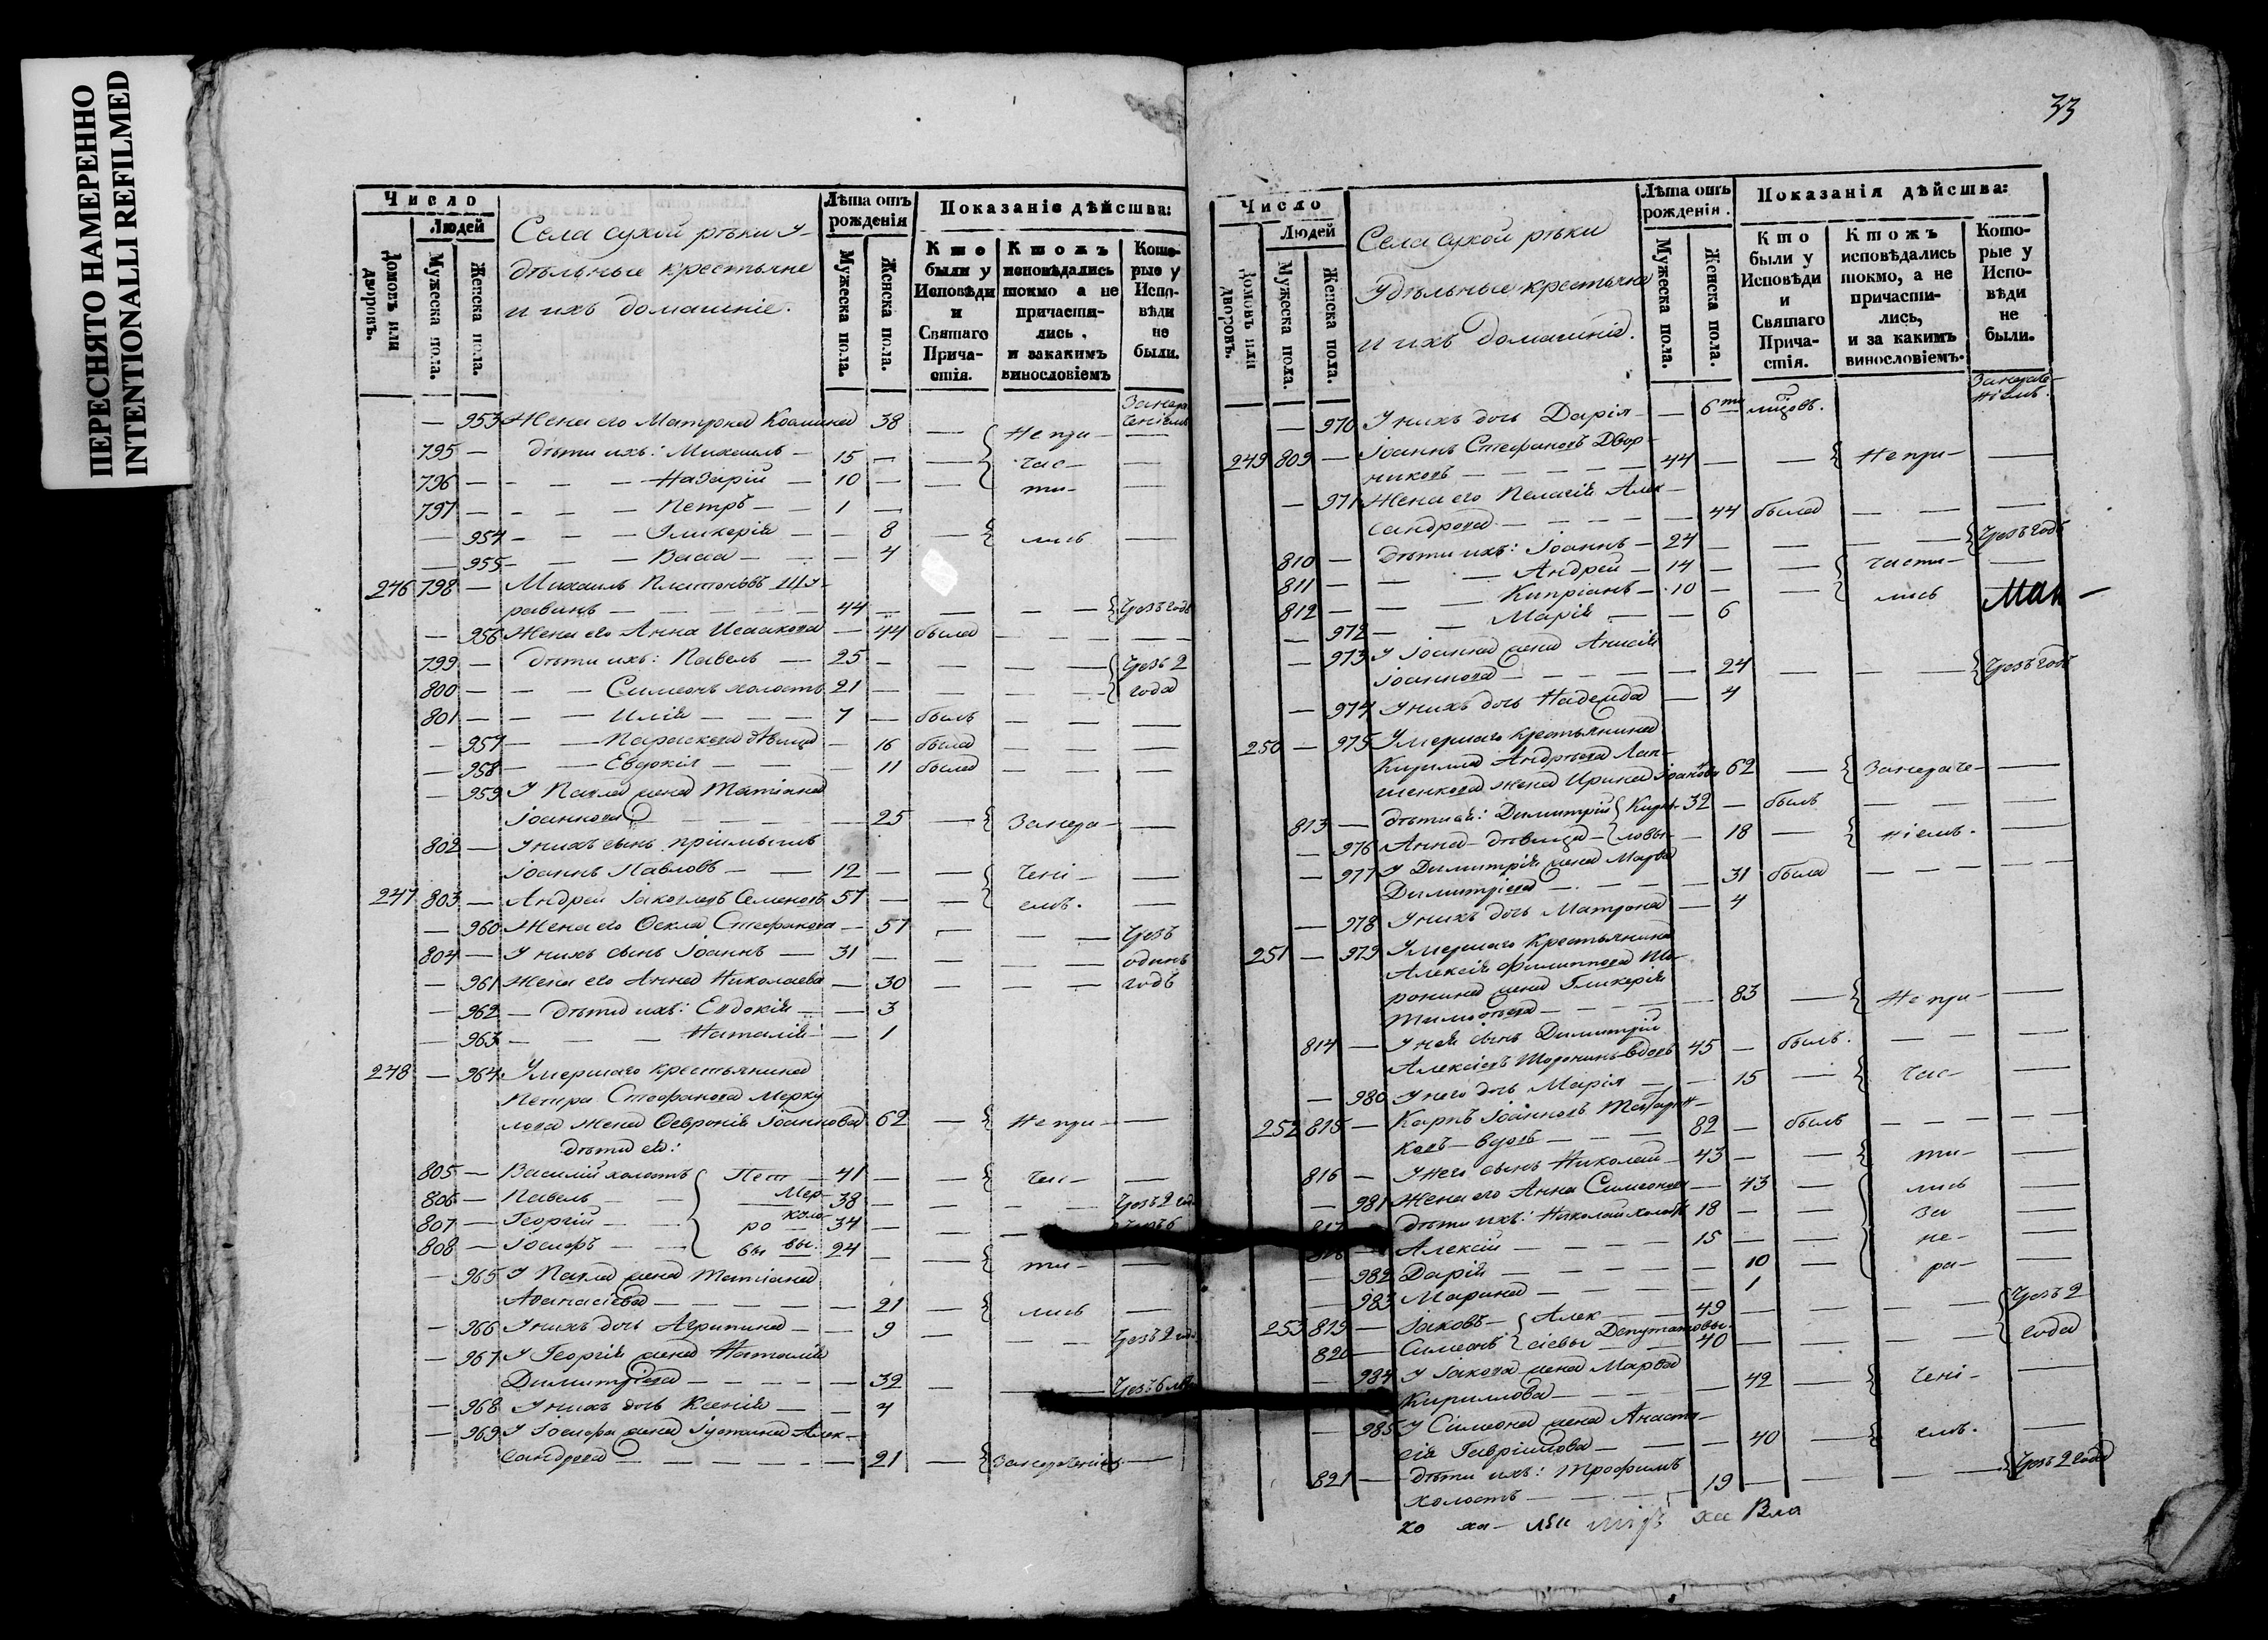 ПЕРЕСНЯТО НАМЕРЕННО
INTENTIONALLI REFILMED
Число
Людей
Домовъ или дворовъ.
Мужеска пола.
Женска пола.
Села сухой рѣки у-
дѣльные крестьяне
и ихъ домашніе.
Лѣта отъ рожденія
Мужеска пола.
Женска пола.
Показаніе дѣйства:
Кто были у Исповѣди и Святаго Прича-стія.
Ктожъ исповѣдались токмо а не причасти-лись, и закакимъ винословіемъ
Кото-рые у Испо-вѣди не были.
— 953 Жена его Матрона 38
795 — дѣти ихъ: Михаилъ — 15 — Не при-
796 — Назарій — 10 — час-
797 — Петръ — 1 — ти-
— 954 — Гликерія — 8 лись
— 955 — Васса — 4
246 798 — Михаилъ Платоновъ
44 — Чрезъ годъ
— 956 Жена его Анна Исаакова — 44 была
799 — дѣти ихъ: Павелъ — 25 — Чрезъ 2
800 — Симеонъ холостъ 21 — года
801 — Илія — 7 — былъ
— 957 — Параскева дѣвица — 16 была
— 958 — Евдокія — 11 была
— 959 У Павла жена Татіана
Іоаннова — 25 — Занера-
802 — У нихъ сынъ пріимышъ
Іоаннъ Павловъ — 12 — чені-
247 803 — Андрей Іаковлевъ Семеновъ 57 — емъ.
— 960 Жена его Ѳекла Стефанова — 57 — Чрезъ
804 — У нихъ сынъ Іоаннъ — 31 — одинъ
— 961 Жена его Анна Николаева — 30 — годъ
— 962 — дѣти ихъ: Евдокія — 3
— 963 — Наталія — 1
248 — 964 Умершаго крестьянина
Петра Стефанова Мерку
лова жена Ѳевронія Іоаннова 62 — Не при-
дѣти его:
805 — Василій холостъ Пет — 41 — час-
806 — Павелъ — Мер- 38 — Чрезъ 2 года
807 — Георгій — ро 34 —
808 — Іосифъ — вы вы. 24 — ти-
— 965 У Павла жена Татіана
Аѳанасіева — 21 — лись
— 966 У нихъ дочь Агрипина — 9 — Чрезъ 2 года
— 967 У Георгія жена Наталія
Димитріева — 32 — Чрезъ 6
— 968 У нихъ дочь Ксенія — 4
— 969 У Іосифа жена Іустина Алек-
сандрова — 21 — Занераченіемъ
33
Число
Людей
Домовъ или дворовъ.
Мужеска пола.
Женска пола.
Села сухой рѣки
Удѣльные крестьяне
и ихъ домашніе.
Лѣта отъ рожденія.
Мужеска пола.
Женска пола.
Показанія дѣйства:
Кто были у Исповѣди и Святаго Прича-стія.
Ктожъ исповѣдались токмо, а не причасти-лись, и за какимъ винословіемъ.
Кото-рые у Испо-вѣди не были.
— 970 У нихъ дочь Дарія — 6ти
249 809 — Іоаннъ Стефановъ Двор-
никовъ — 44 — Не при-
— 971 Жена его Пелагія Алек-
сандрова — 44 была
810 — дѣти ихъ: Іоаннъ — 24 — Чрезъ годъ
811 — Андрей — 14 — части-
812 — Кипріанъ — 10 — лись Мак-
— 972 — Марія — 6
— 973 У Іоанна жена Анисія
Іоаннова — 24 — Чрезъ годъ
— 974 У нихъ дочь Надежда — 4
250 — 975 Умершаго крестьянина
Кирилла Андрѣева Лап-
шенкова жена Ирина Іоаннова 62 — Занераче-
813 — дѣти ея: Димитрій Кирил- 32 — былъ
— 976 Анна дѣвица ловы — 18 — ніемъ.
— 977 У Димитрія жена Марѳа
Димитріева — 31 была
— 978 У нихъ дочь Матрона — 4
251 — 979 Умершаго крестьянина
Алексія Филиппова Ше-
ронина жена Гликерія
Тимоѳѣева — 83 — Не при-
814 — У нея сынъ Димитрій
Алексіевъ вдовъ 45 — былъ.
— 980 У него дочь Марія — 15 — час-
252 815 — Карпъ Іоанновъ
ковъ — вдовъ — 82 — былъ
816 — У него сынъ Николай — 43 — ти-
— 981 Жена его Анна Симеонова — 43 — лись
817 — дѣти ихъ: Николай холостъ 18 — за
818 — Алексій — 15 — не-
— 982 Дарія — 10 — ра-
— 983 Марина — 1
253 819 — Іаковъ — Алек — 49 — Чрезъ 2
820 — Симеонъ сіевы Депутатовы. 40 — года
— 984 У Іакова жена Марѳа
Кириллова — 42 — чені-
— 985 У Симеона жена Анаста-
сія Гавріилова — 40 — емъ.
821 — дѣти ихъ: Трофимъ
холостъ — 19 — Чрезъ 2 года